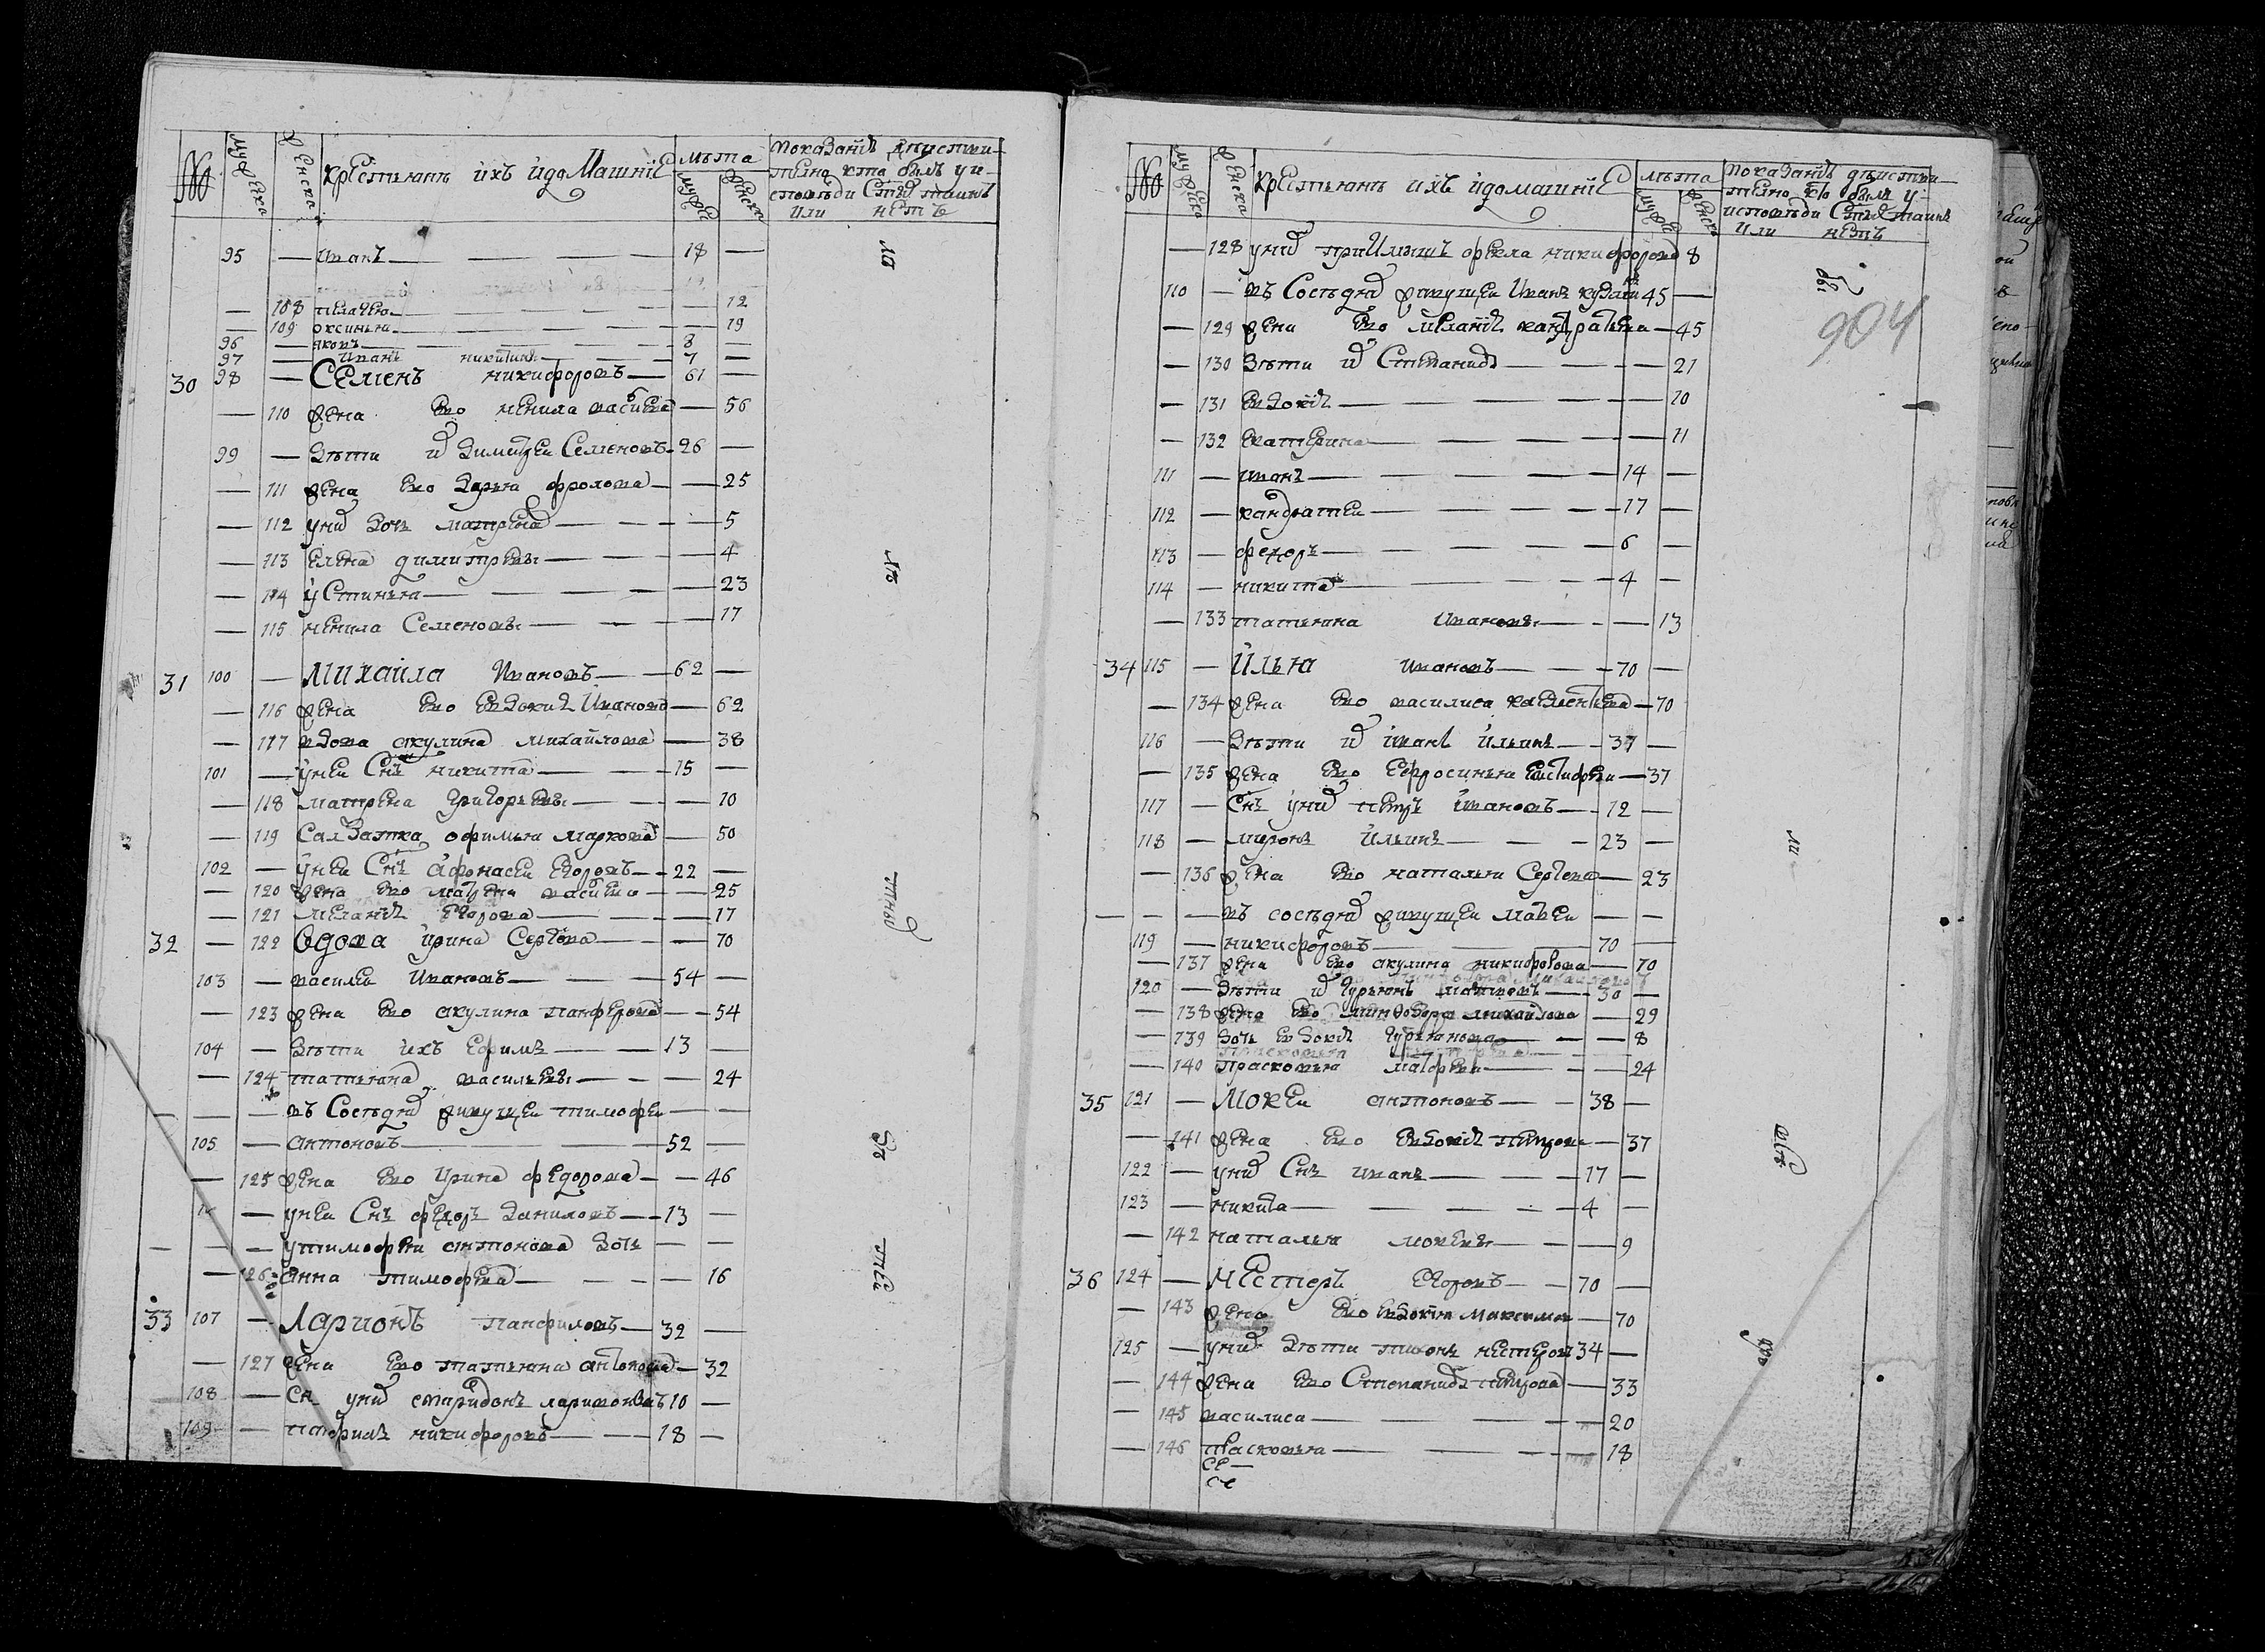 № мужеска женска крестьянъ ихъ идомашнiе лѣта мужес женска
показанiе дѣистви-
телно кто былъ уи-
споведи Стых таинъ
или нетъ
95 — иванъ — 18 —
— 108 пелагея — 12
— 109 оксинья — 19
96 — яковъ — 8 —
97 — иванъ никитинъ — 7 —
30 98 — Семенъ никифоровъ — 61 —
— 110 жена ево ненила васильева — 56
99 — дѣти их димитреи Семеновъ 26 —
— 111 жена ево дарья фролова — 25
— 112 у них дочь матрена — 5
— 113 елена димитревы — 4
— 114 устинья — 23
— 115 ненила Семеновы — 17
31 100 — Михаила Ивановъ — 62 —
— 116 жена ево евдокия Иванова — 62
— 117 вдова акулина михаилова — 38
101 — унеи Снъ никита — 15 —
— 118 матрена григорьевы — 10
— 119 Салдатка офимья маркова — 50
102 — унеи Снъ афонасеи егоровъ — 22 —
— 120 жена ево васильева — 25
— 121 меланiя егорова — 17
32 — 122 вдова ирина Сергеева — 70
103 — василеи Ивановъ — 54 —
— 123 жена ево акулина панферова — 54
104 — дѣти ихъ ефимъ — 13 —
— 124 татьяна васильевы — 24
— — — въ Сосѣдях живущеи тимофеи — —
105 — антоновъ — 52 —
— 125 жена ево Ирина федорова — 46
— унеи Снъ федоръ даниловъ — 13 —
— — — утимофея антонова дочь — —
— 126 анна тимофеева — 16
33 107 — Ларионъ панфиловъ — 32 —
— 127 жена ево татьяна антонова — 32
108 — Снъ у них спиридонъ ларионовъ 10 —
109 — никифоровъ — 18 —
№ мужеска женска крестьянъ ихъ идомашнiе лѣта мужес женска
показанiе дѣистви-
телно кто былъ у-
исповѣди Стых таинъ
или нетъ
904
— 128 у них фекла никифорова 8
110 — въ Сосѣдях живущеи Иванъ 45 —
— 129 жена ево меланiя кандратьева — 45
— 130 дѣти их Степанида — 21
— 131 евдокiя — 10
— 132 екатерина — 11
111 — иванъ — 14 —
112 — кандратеи — 17 —
113 — федоръ — 6 —
114 — никита — 4 —
— 133 татьяна Ивановы — 13
34 115 — Илья ивановъ — 70 —
— 134 жена ево василиса — 70
116 — дѣти их иванъ ильинъ — 37 —
— 135 жена ево ефросинья — 37
117 — Снъ у них петръ ивановъ — 12 —
118 — миронъ ильинъ — 23 —
— 136 жена ево наталья Сергеева — 23
— — — въ сосѣдях живущеи — —
119 — никифоровъ — 70 —
— 137 жена ево акулина никифорова — 70
120 — дѣти их — 30 —
— 138 жена ево михаилова — 29
— 139 дочь евдокiя — 8
— 140 прасковья — 24
35 121 — Мокеи антоновъ — 38 —
— 141 жена ево евдокiя петрова — 37
122 — у них Снъ иванъ — 17 —
123 — никита — 4 —
— 142 наталья мокеевы — 9
36 124 — Нестеръ егоровъ — 70 —
— 143 жена ево евдокия максимова — 70
125 — у них дѣти тихонъ нестеровъ 34 —
— 144 жена ево Степанида петрова — 33
— 145 василиса — 20
— 146 прасковья — 18